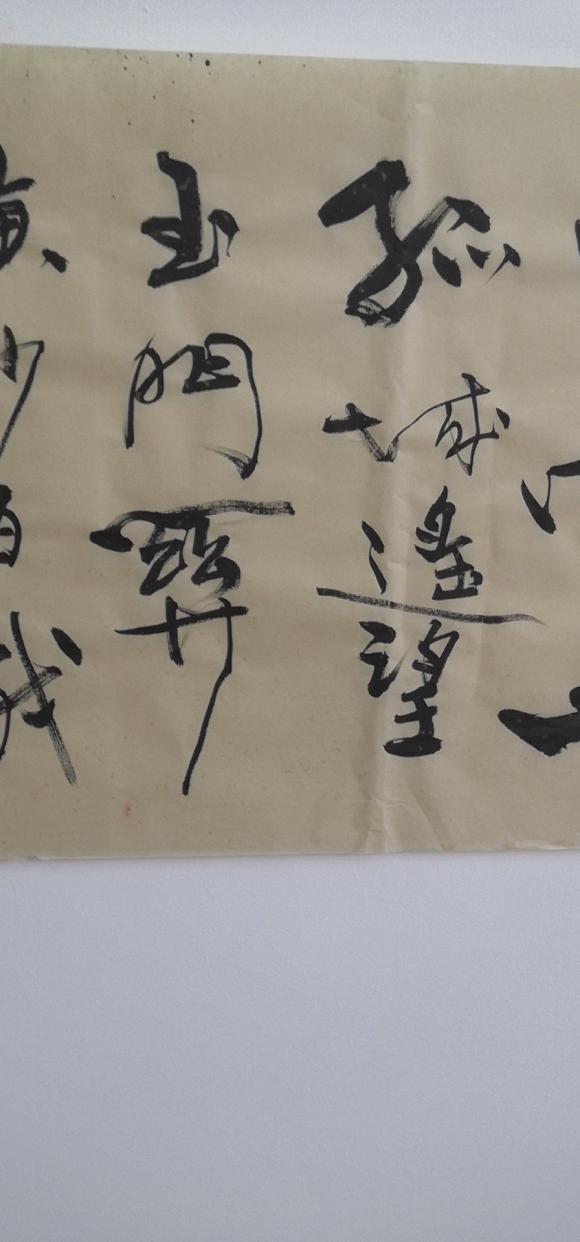 孤城遙望
玉門關
黄沙百戰